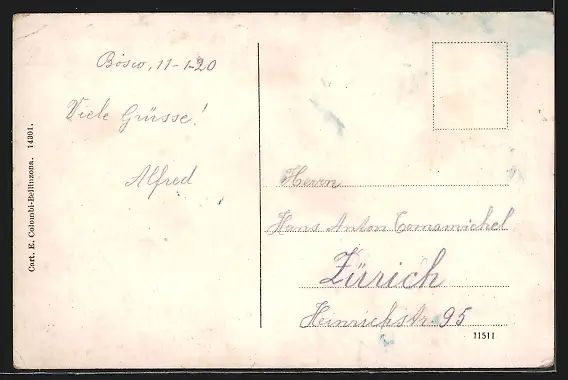 Bosco, 11-1-20
Viele Grüsse!
Alfred
Cart. E. Colombi-Bellinzona. 14301.
Herrn
Hans Anton Tomamichel
Zürich
Heinrichstr. 95
11511